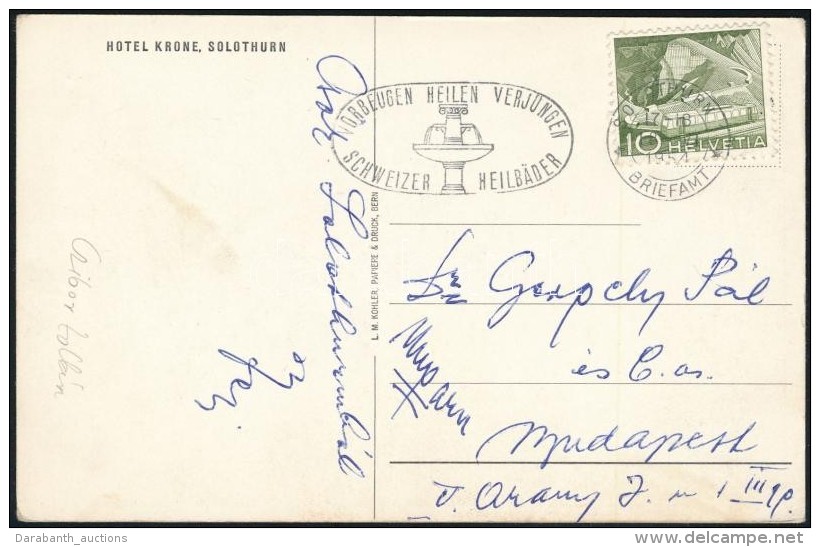 HOTEL KRONE, SOLOTHURN
VORBEUGEN HEILEN VERJÜNGEN
SCHWEIZER HEILBÄDER
10 HELVETIA
SOLOTHURN
1954
BRIEFAMT
L. M. KOHLER, PAPIERE & DRUCK, BERN
Solothurnból
Dr Gergely Pál
és C.
Budapest
V. Arany J. u 1
Darabanth_auctions
delcampe.net